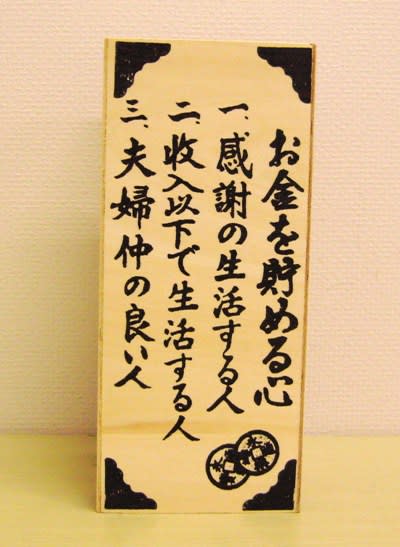 お金を貯める心
一、感謝の生活する人
二、収入以下で生活する人
三、夫婦仲の良い人